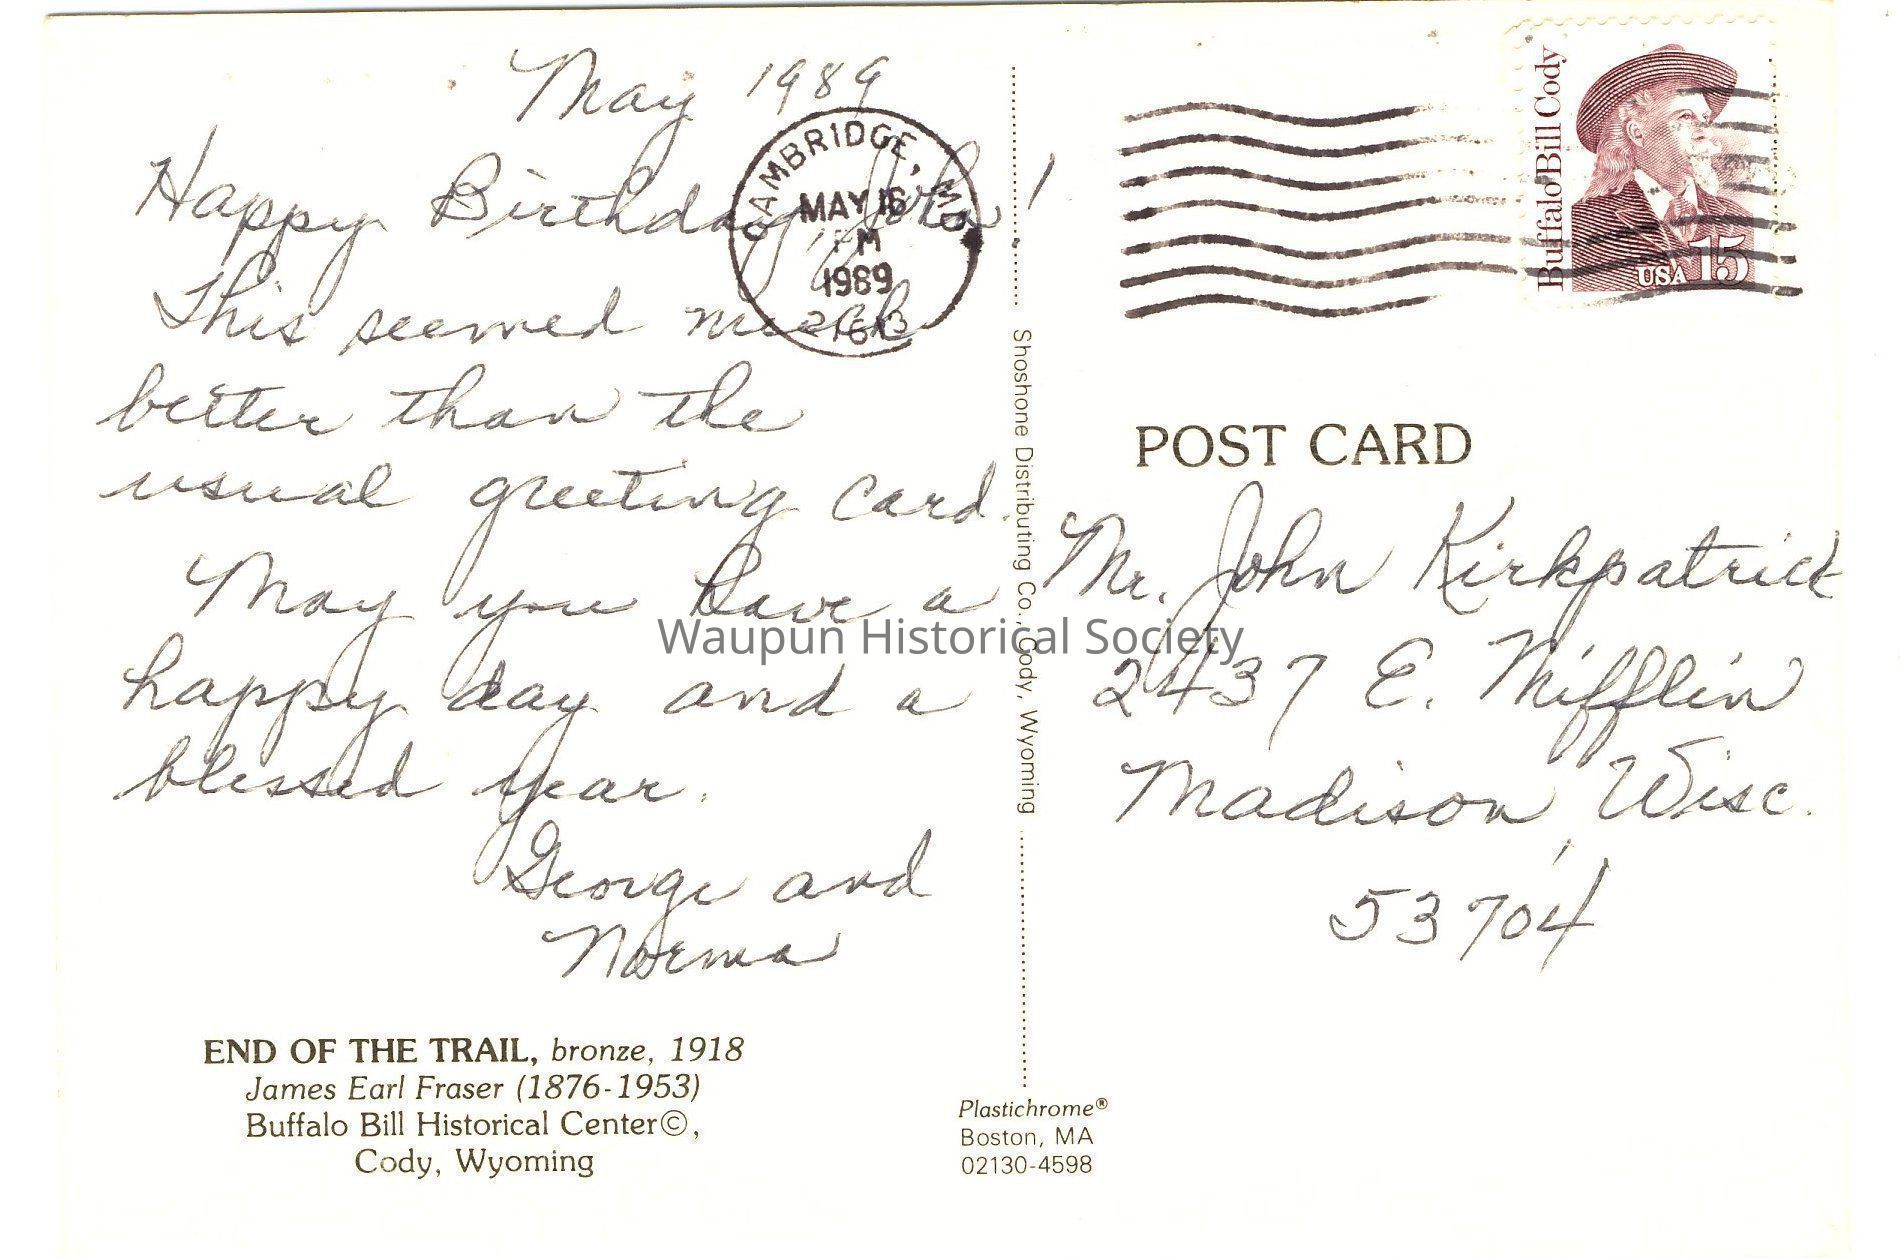 May 1989
Happy Birthday, John!
This seemed much
better than the
usual greeting card.
May you have a
happy day and a
blessed year.
George and
Norma
END OF THE TRAIL, bronze, 1918
James Earl Fraser (1876-1953)
Buffalo Bill Historical Center©,
Cody, Wyoming
CAMBRIDGE, MD
MAY 16
PM
1989
21613
Shoshone Distributing Co., Cody, Wyoming
Plastichrome®
Boston, MA
02130-4598
Buffalo Bill Cody
USA 15
POST CARD
Mr. John Kirkpatrick
2437 E. Mifflin
Madison, Wisc.
53704
Waupun Historical Society